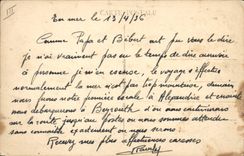 En mer le 13/4/36
Comme Papa et Bébert ont pu vous le dire
je n'ai vraiment pas eu le temps de dire au revoir
à personne, je m'en excuse, le voyage s'effectue
normalement la mer n'est pas trop mauvaise, demain
nous ferons notre première escale à Alexandrie et ensuite
nous débarquerons à Beyrouth d'où nous continuerons
sur la route jusqu'au postes ou nous sommes attendus
sans connaitre exactement ou nous serons
Recevez mes plus affectueuses caresses